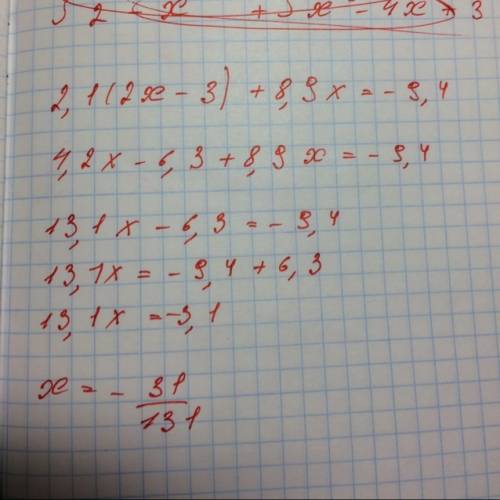 2,1(2x - 3) + 8,9x = -9,4
4,2x - 6,3 + 8,9x = -9,4
13,1x - 6,3 = -9,4
13,1x = -9,4 + 6,3
13,1x = -3,1
x = - 31/131